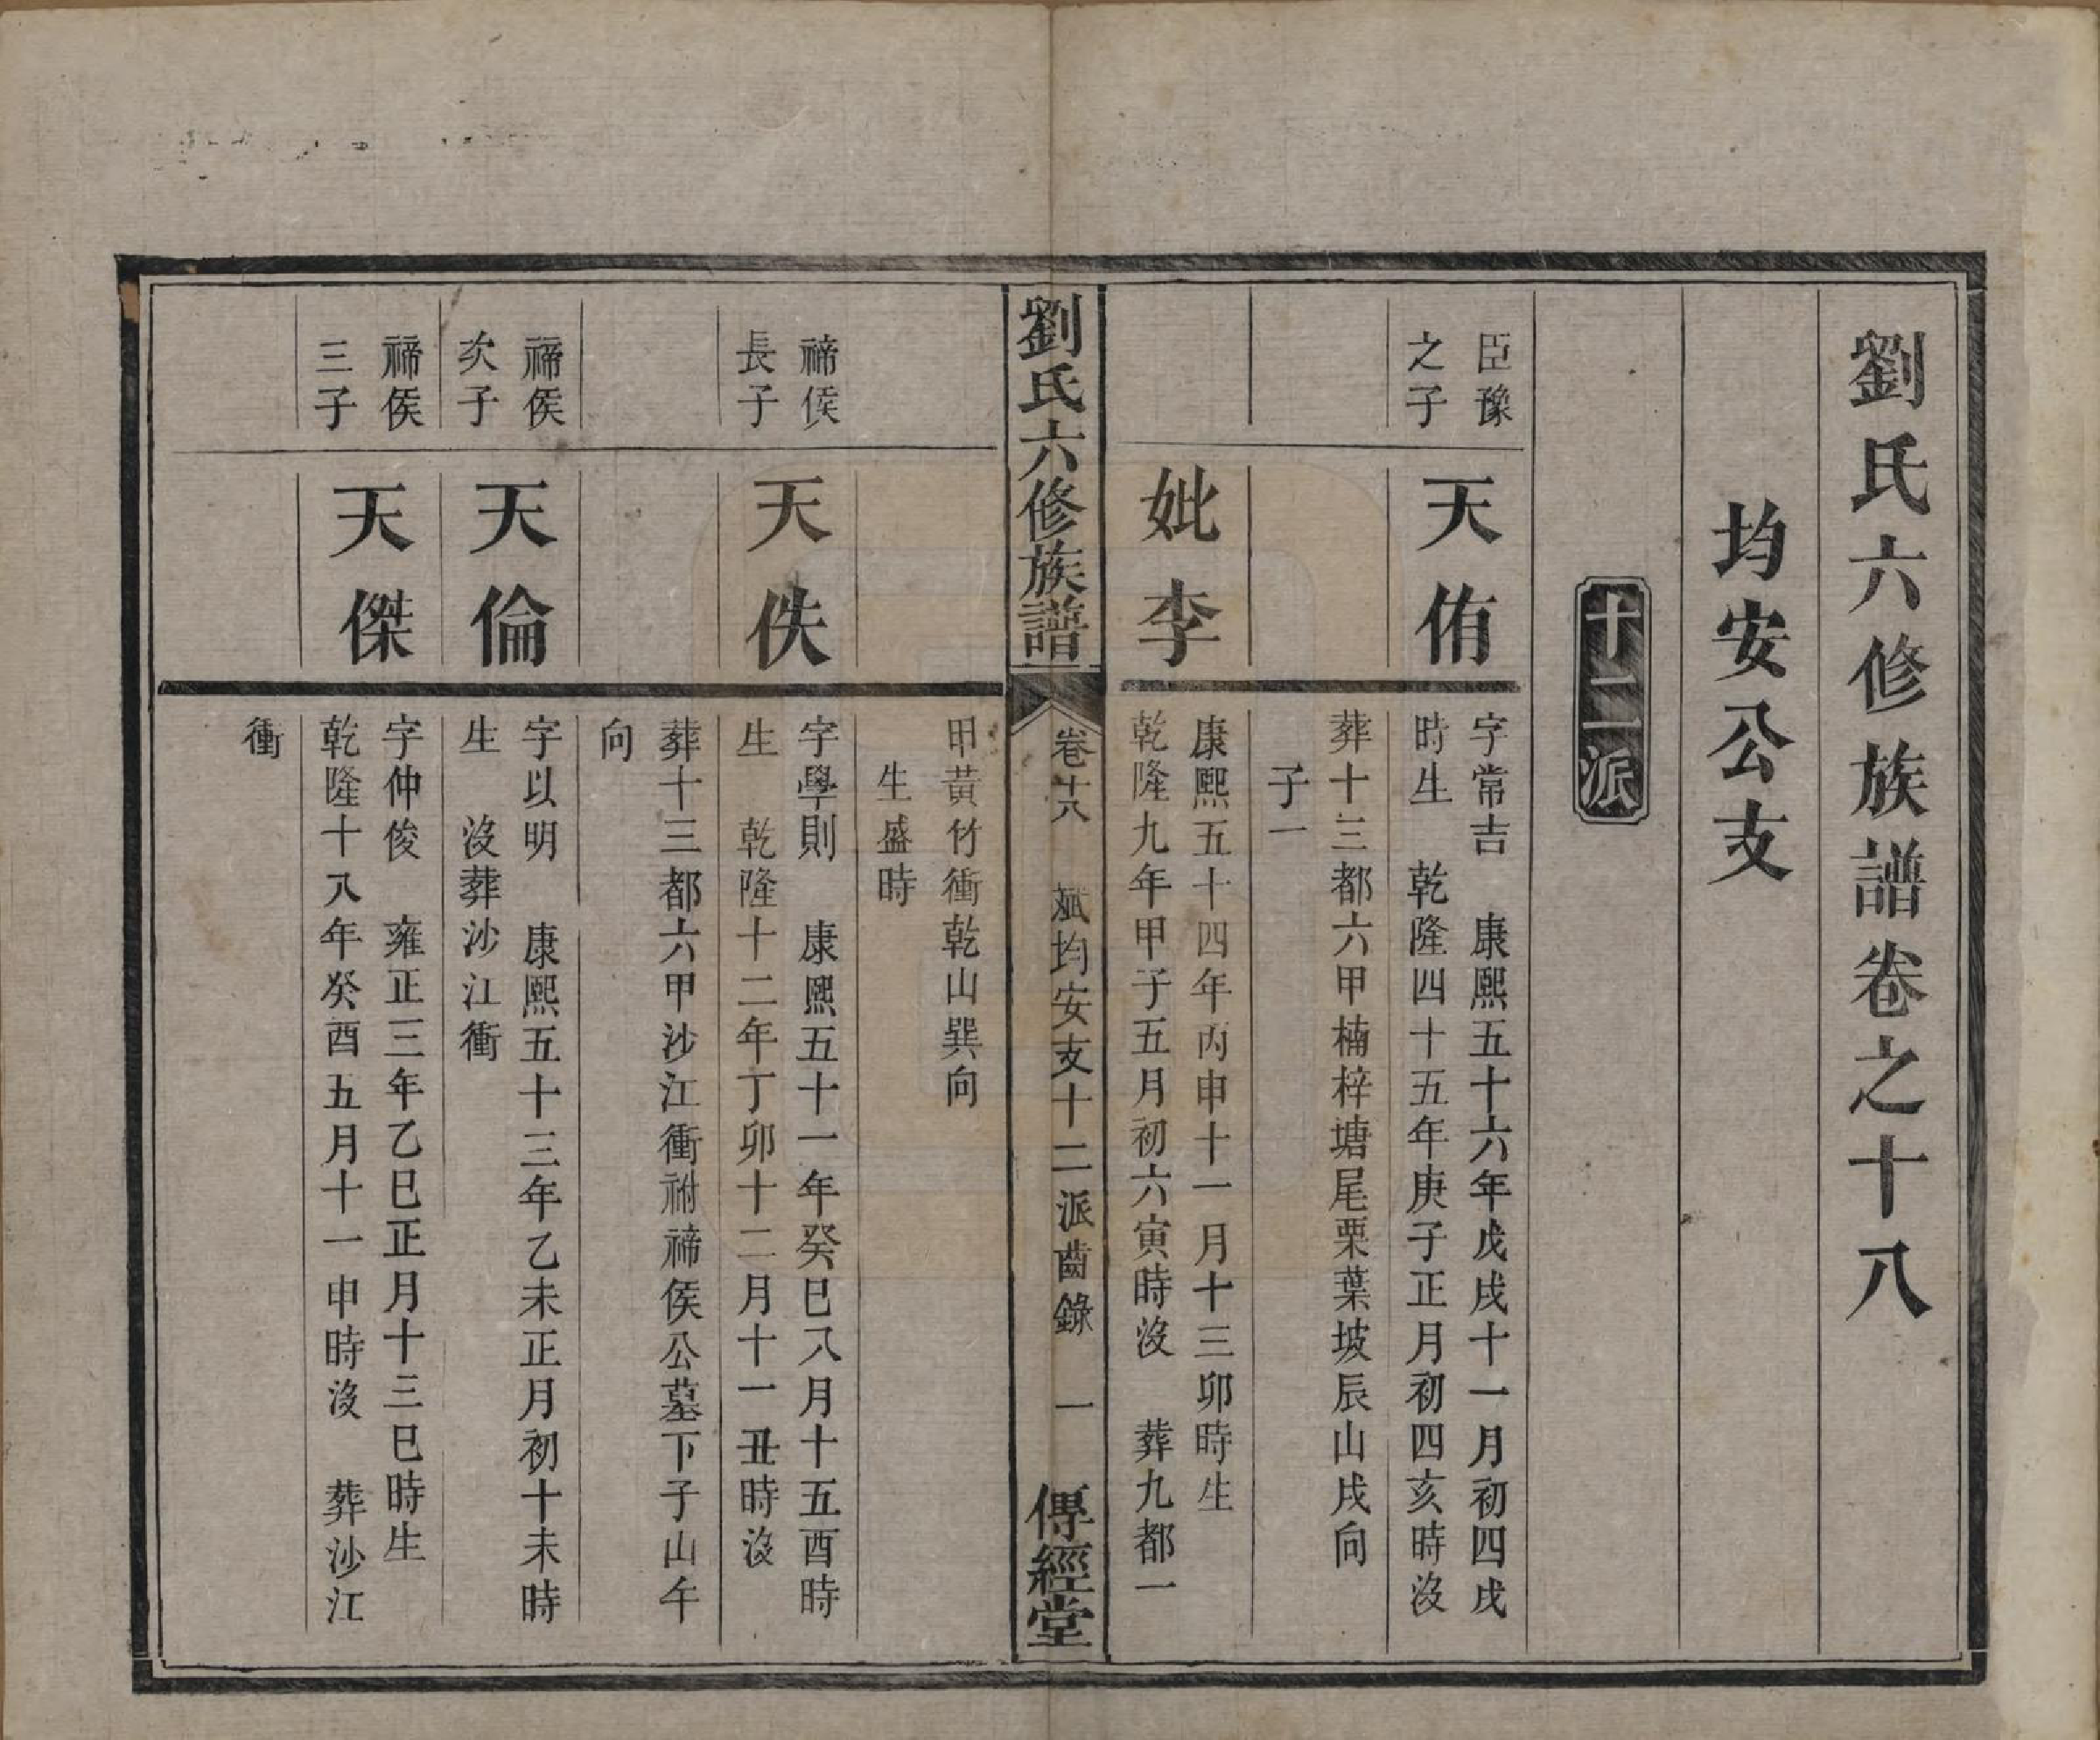 劉氏六修族譜卷之十八
均安公支
十二派
臣豫
之子
天侑
字常吉　康熙五十六年戊戌十一月初四戌
時生　乾隆四十五年庚子正月初四亥時沒
葬十三都六甲楠梓塘尾栗葉坡辰山戌向
子一
妣李
康熙五十四年丙申十一月十三卯時生
乾隆九年甲子五月初六寅時沒　葬九都一
劉氏六修族譜
卷十八　斌均安支十二派齒錄　一
傳經堂
甲黃竹衝乾山巽向
生盛時
禘侯
長子
天佚
字學則　康熙五十一年癸巳八月十五酉時
生　乾隆十二年丁卯十二月十一丑時沒
葬十三都六甲沙江衝祔禘侯公墓下子山午
向
禘侯
次子
天倫
字以明　康熙五十三年乙未正月初十未時
生　沒葬沙江衝
禘侯
三子
天傑
字仲俊　雍正三年乙巳正月十三巳時生
乾隆十八年癸酉五月十一申時沒　葬沙江
衝